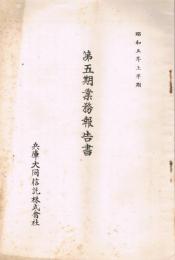 昭和五年上半期
第五期業務報告書
兵庫大同信託株式會社